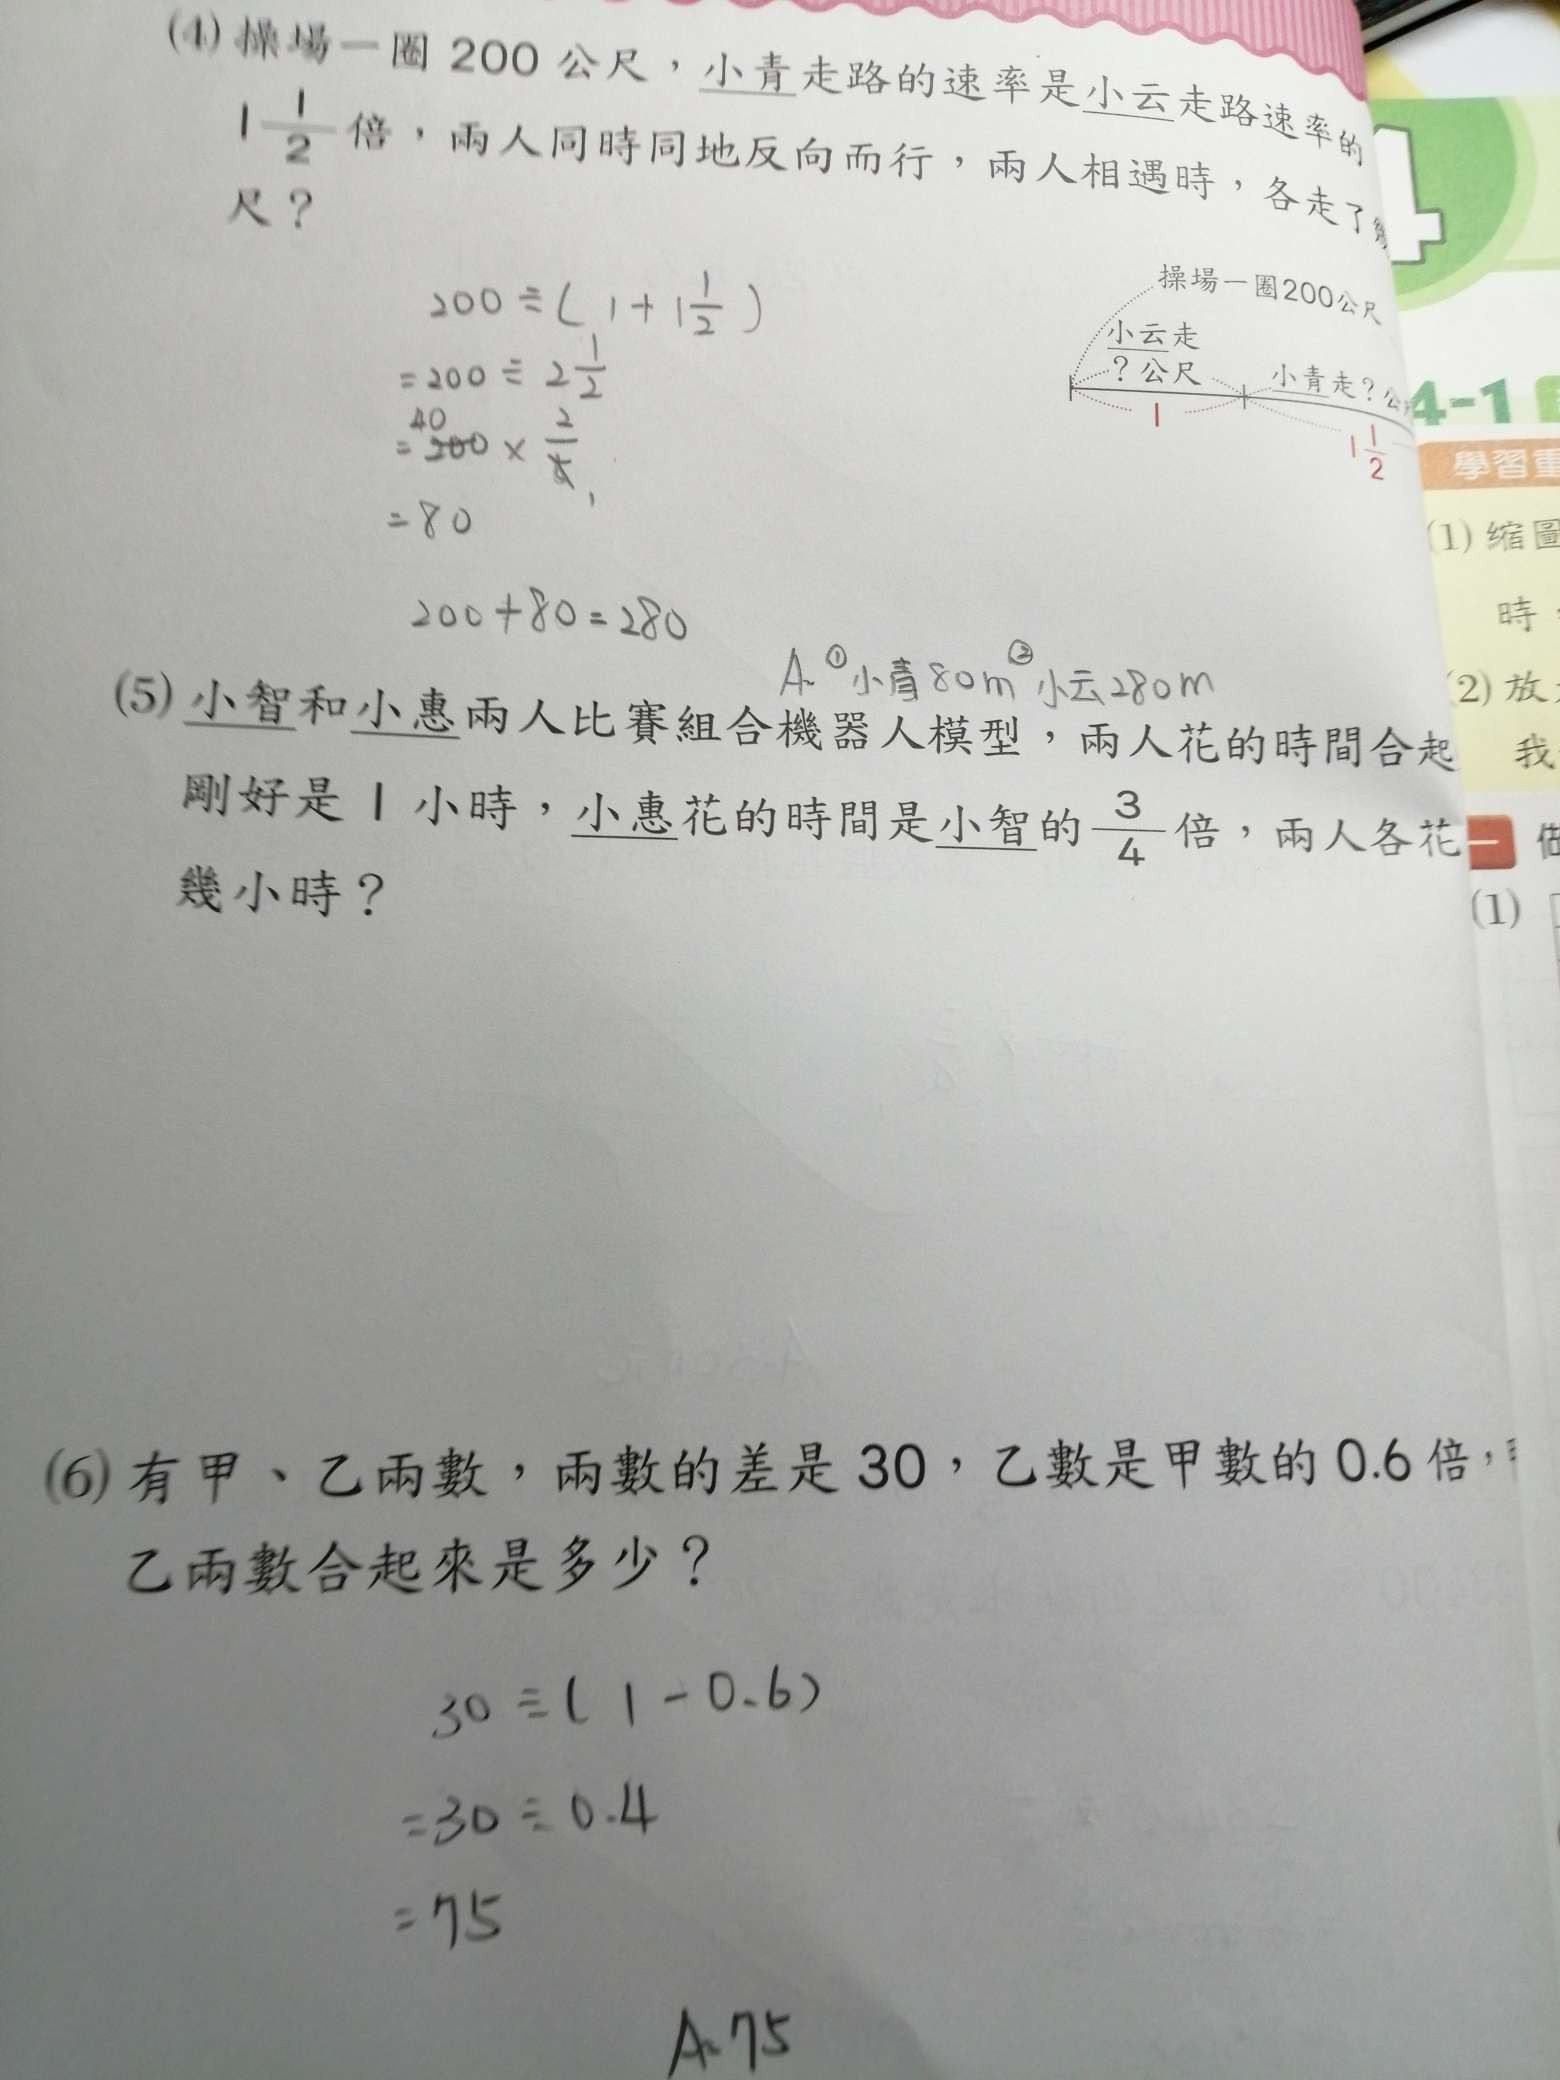 (4) 操場一圈 200 公尺，小青走路的速率是小云走路速率的
1 1/2 倍，兩人同時同地反向而行，兩人相遇時，各走了
尺？
操場一圈200公尺
小云走
？公尺
小青走？公
1
1 1/2
200 ÷ ( 1 + 1 1/2 )
= 200 ÷ 2 1/2
40
= 200 × 2/5
1
= 80
200 + 80 = 280
A. ①小青80m ②小云280m
(5) 小智和小惠兩人比賽組合機器人模型，兩人花的時間合起
剛好是 1 小時，小惠花的時間是小智的 3/4 倍，兩人各花
幾小時？
(6) 有甲、乙兩數，兩數的差是 30，乙數是甲數的 0.6 倍，
乙兩數合起來是多少？
30 ÷ ( 1 - 0.6 )
= 30 ÷ 0.4
= 75
A. 75
4
4-1
學習重
(1) 縮圖
時
(2) 放
我
一
(1)